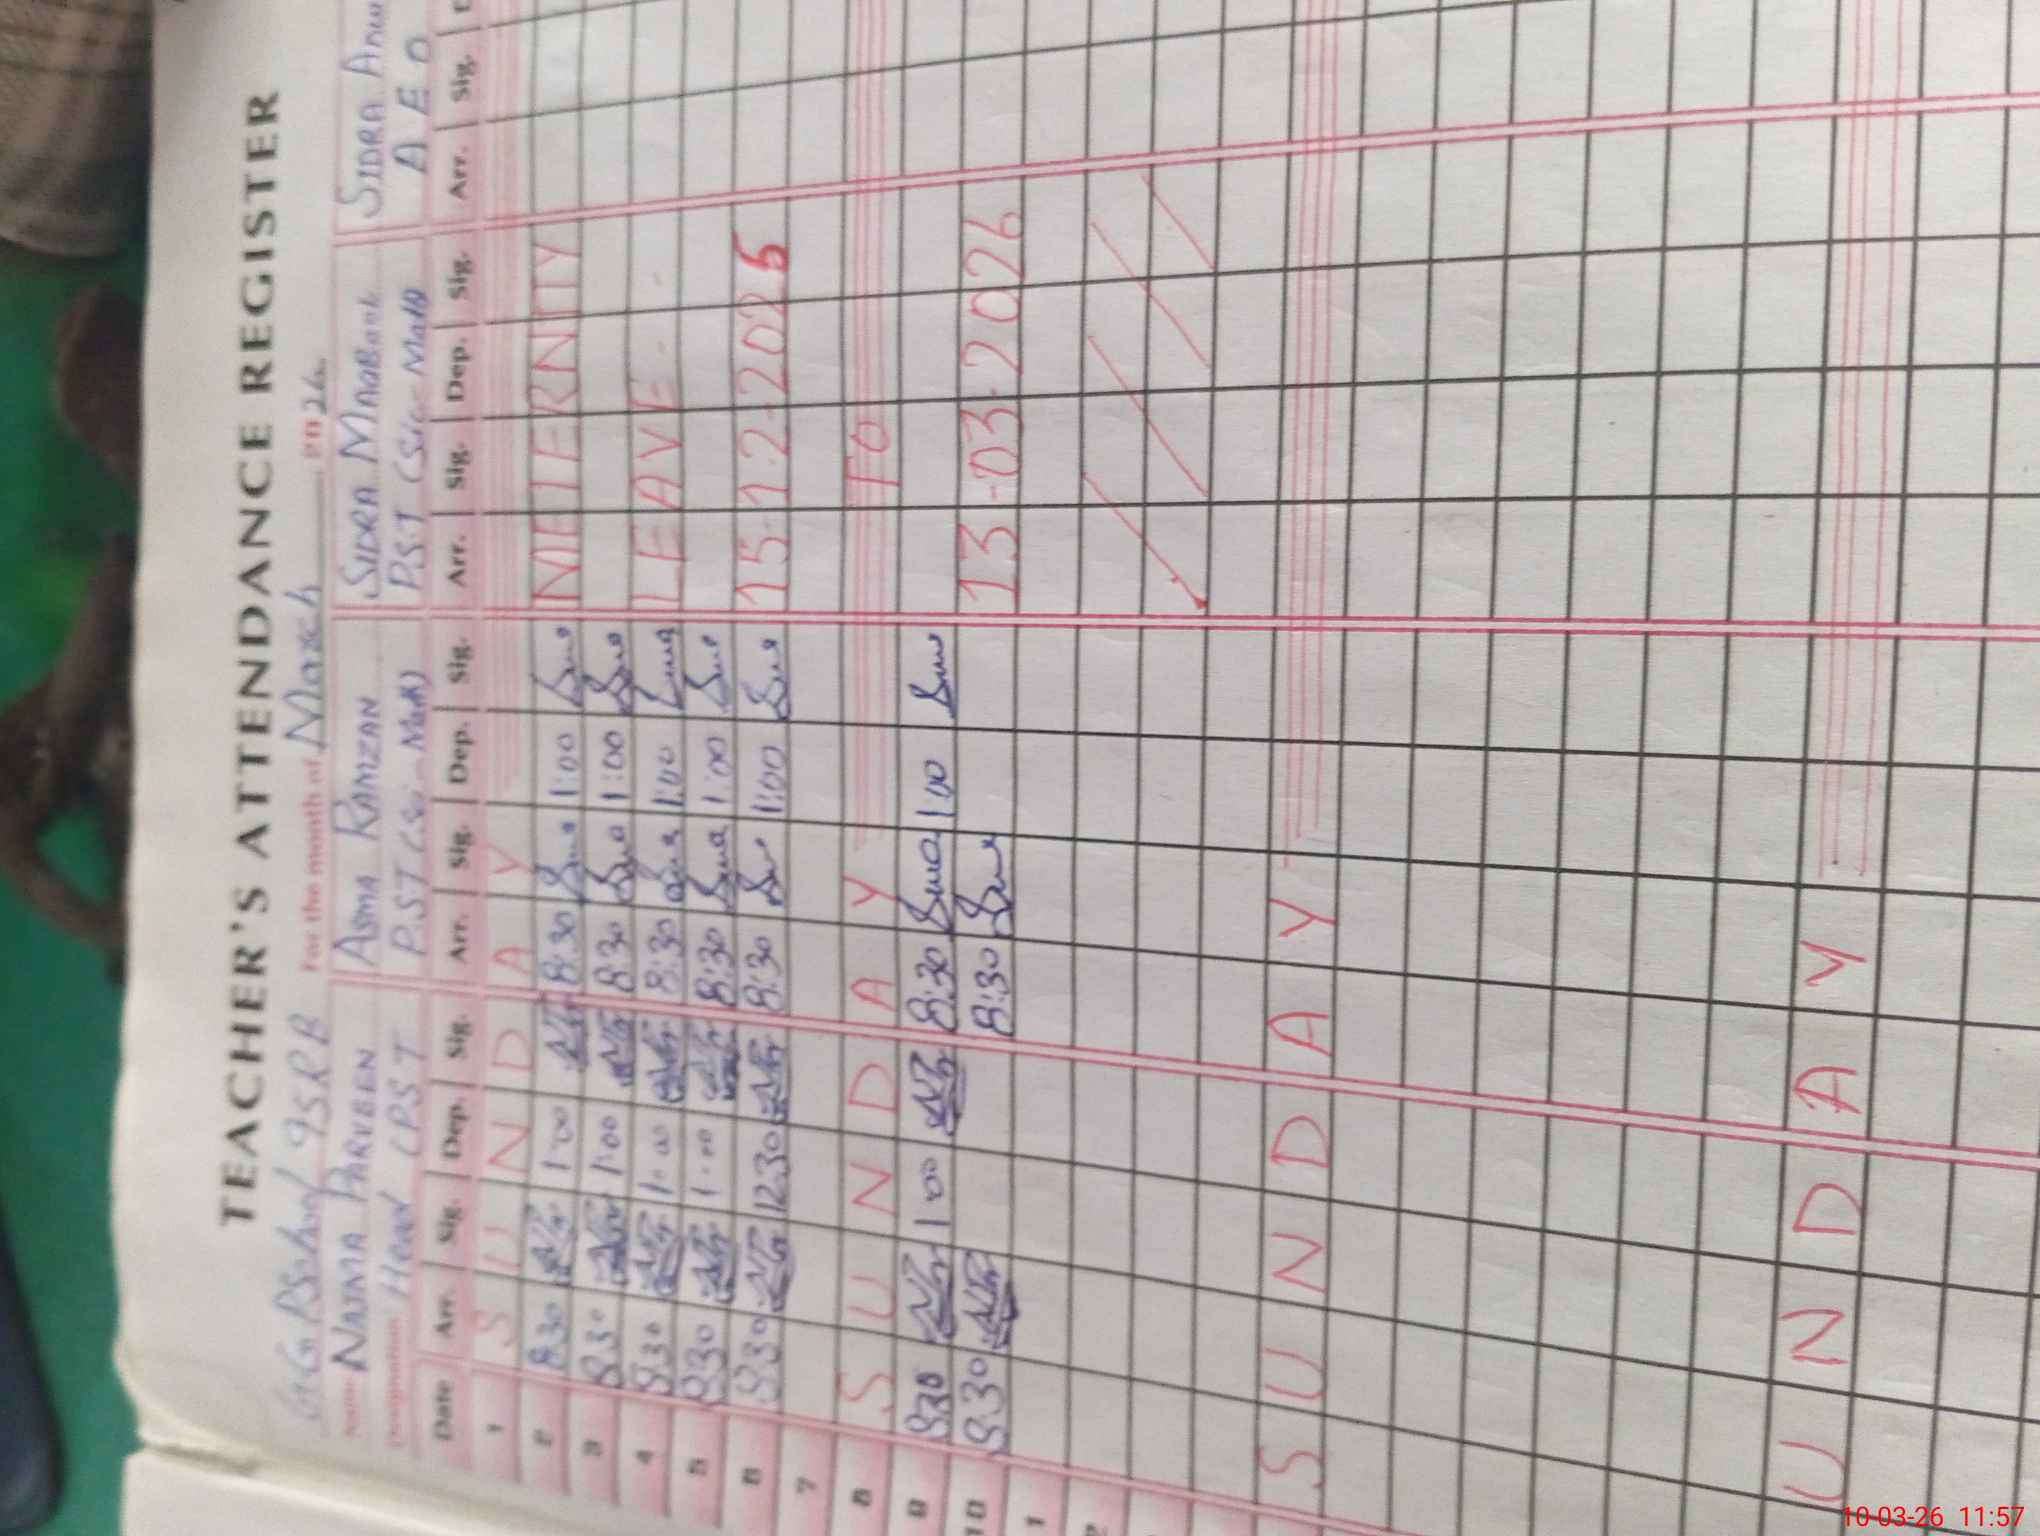 TEACHER'S ATTENDANCE REGISTER
GG PSchool 95RB For the month of March 2026
NAJMA PARVEEN ASMA RAMZAN SIDRA MAABOOL SIDRA
Head PST P.ST (Sc-Math) P.S.T (Sc-Math) A E O
Date Arr. Sig. Dep. Sig. Arr. Sig. Dep. Sig. Arr. Sig. Dep. Sig. Arr. Sig.
1 S U N D A Y
2 8.30 1:00 8:30 1:00 METERNITY
3 8.30 1:00 8:30 1:00
4 8.30 1:00 8:30 1:00 LEAVE
5 8.30 1:00 8:30 1:00
6 8.30 12:30 8:30 1:00 15-12-2025
7
8 S U N D A Y TO
9 8.30 1:00 8:30 1:00
10 8.30 8:30 13-03-2026
S U N D A Y
U N D A Y
10-03-26 11:57